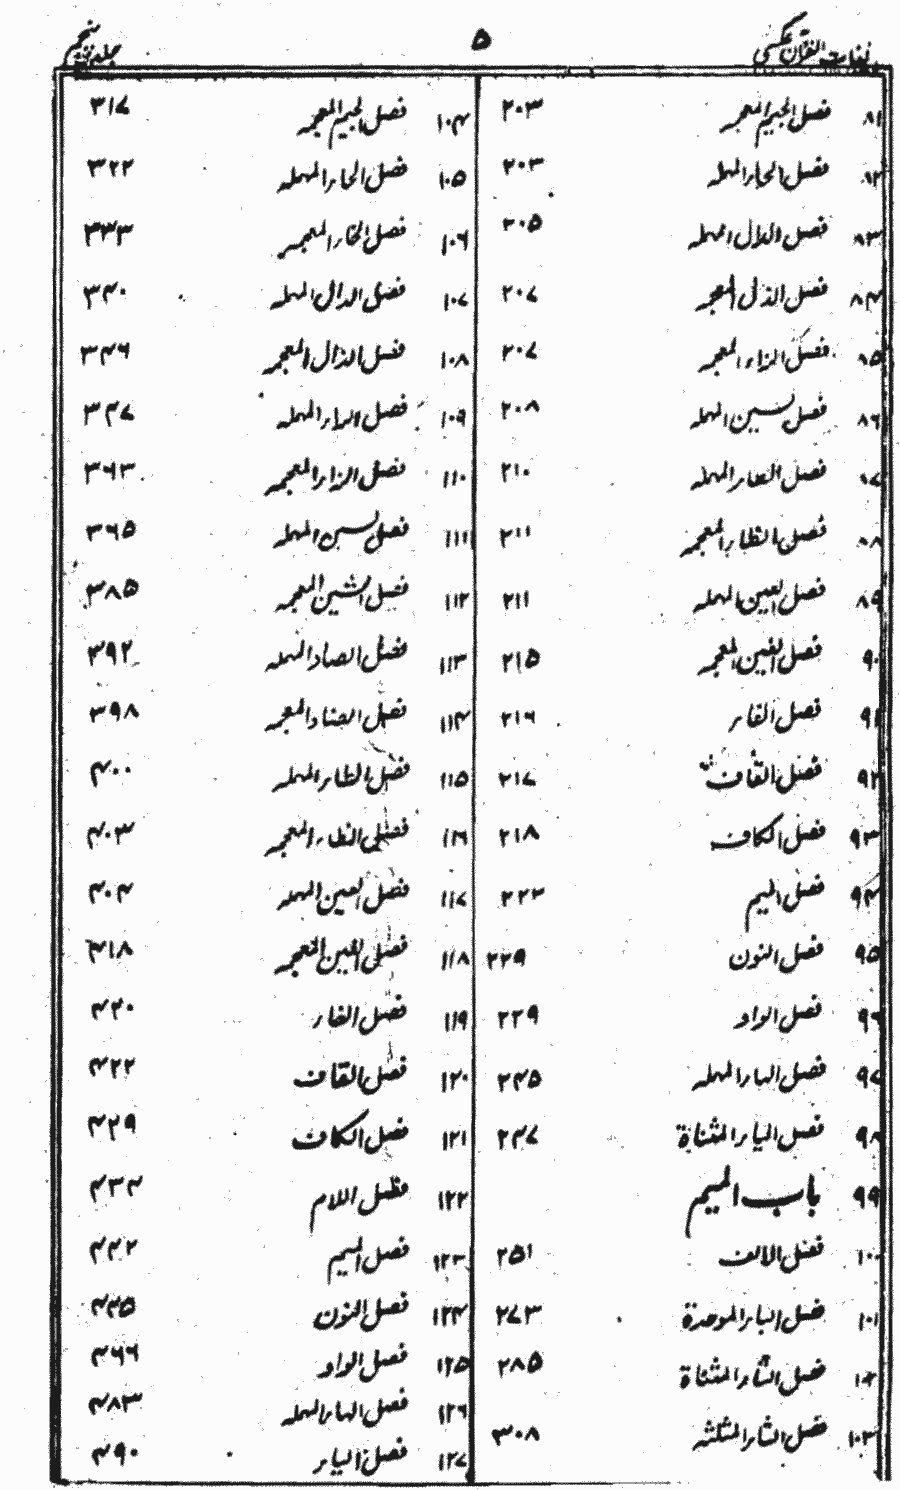 لغات القرآن عکسی
۵
جلد پنجم
۸۱ فصل الجیم المعجمہ ۲۰۳
۸۲ فصل الحاء المہملہ ۲۰۳
۸۳ فصل الدال المہملہ ۲۰۵
۸۴ فصل الذال المعجمہ ۲۰۷
۸۵ فصل الزاء المعجمہ ۲۰۷
۸۶ فصل سین المہملہ ۲۰۸
۸۷ فصل الطاء المہملہ ۲۱۰
۸۸ فصل الظاء المعجمہ ۲۱۱
۸۹ فصل العین المہملہ ۲۱۱
۹۰ فصل الغین المعجمہ ۲۱۵
۹۱ فصل الفاء ۲۱۶
۹۲ فصل القاف ۲۱۷
۹۳ فصل الکاف ۲۱۸
۹۴ فصل المیم ۲۲۳
۹۵ فصل النون ۲۲۹
۹۶ فصل الواو ۲۲۹
۹۷ فصل الہاء المہملہ ۲۴۵
۹۸ فصل الیاء المثناة ۲۴۷
۹۹ باب المیم
۱۰۰ فصل الالف ۲۵۱
۱۰۱ فصل الباء الموحدة ۲۷۳
۱۰۲ فصل التاء المثناة ۲۸۵
۱۰۳ فصل الثاء المثلثہ ۳۰۸
۱۰۴ فصل الجیم المعجمہ ۳۱۷
۱۰۵ فصل الحاء المہملہ ۳۲۲
۱۰۶ فصل الخاء المعجمہ ۳۳۳
۱۰۷ فصل الدال المہملہ ۳۴۰
۱۰۸ فصل الذال المعجمہ ۳۴۶
۱۰۹ فصل الراء المہملہ ۳۴۷
۱۱۰ فصل الزاء المعجمہ ۳۶۳
۱۱۱ فصل سین المہملہ ۳۶۵
۱۱۲ فصل الشین المعجمہ ۳۸۵
۱۱۳ فصل الصاد المہملہ ۳۹۲
۱۱۴ فصل الضاد المعجمہ ۳۹۸
۱۱۵ فصل الطاء المہملہ ۴۰۰
۱۱۶ فصل الظاء المعجمہ ۴۰۳
۱۱۷ فصل العین المہملہ ۴۰۴
۱۱۸ فصل الغین المعجمہ ۴۱۸
۱۱۹ فصل الفاء ۴۲۰
۱۲۰ فصل القاف ۴۲۲
۱۲۱ فصل الکاف ۴۲۹
۱۲۲ فصل اللام ۴۳۴
۱۲۳ فصل المیم ۴۴۲
۱۲۴ فصل النون ۴۴۵
۱۲۵ فصل الواو ۴۶۶
۱۲۶ فصل الہاء المہملہ ۴۸۳
۱۲۷ فصل الیاء ۴۹۰